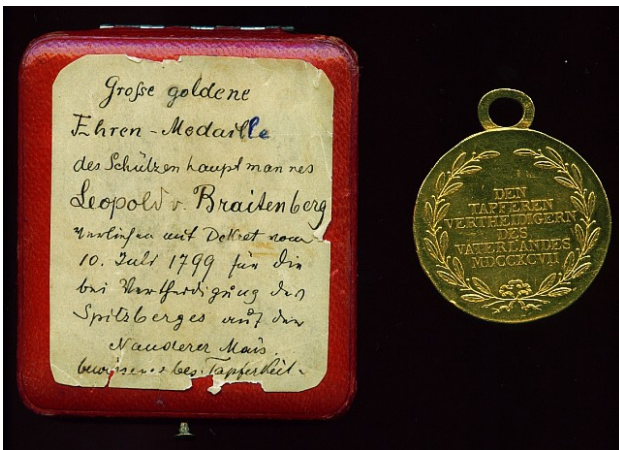 Große goldene
Ehren-Medaille
des Schützenhauptmannes
Leopold v. Braitenberg
verliehen mit Dekret vom
10. Juli 1799 für die
bei Vertheidigung des
Spitzberges auf der
Nauderer Mais
bewiesene bes. Tapferkeit.
DEN
TAPFEREN
VERTHEIDIGERN
DES
VATERLANDES
MDCCXCVII